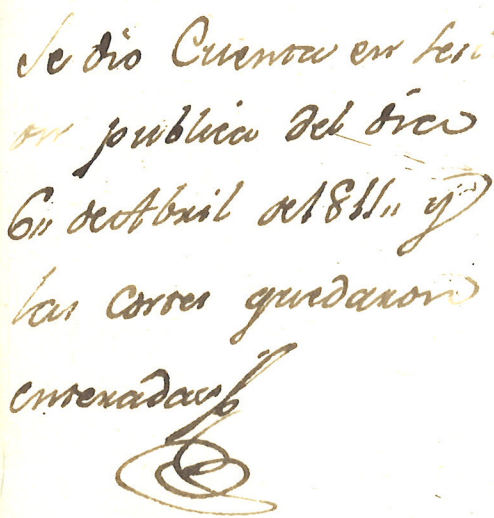 Se dio Cuenta en sesi
on publica del dia
6,, de Abril de 1811,, y
las Cortes quedaron
enteradas